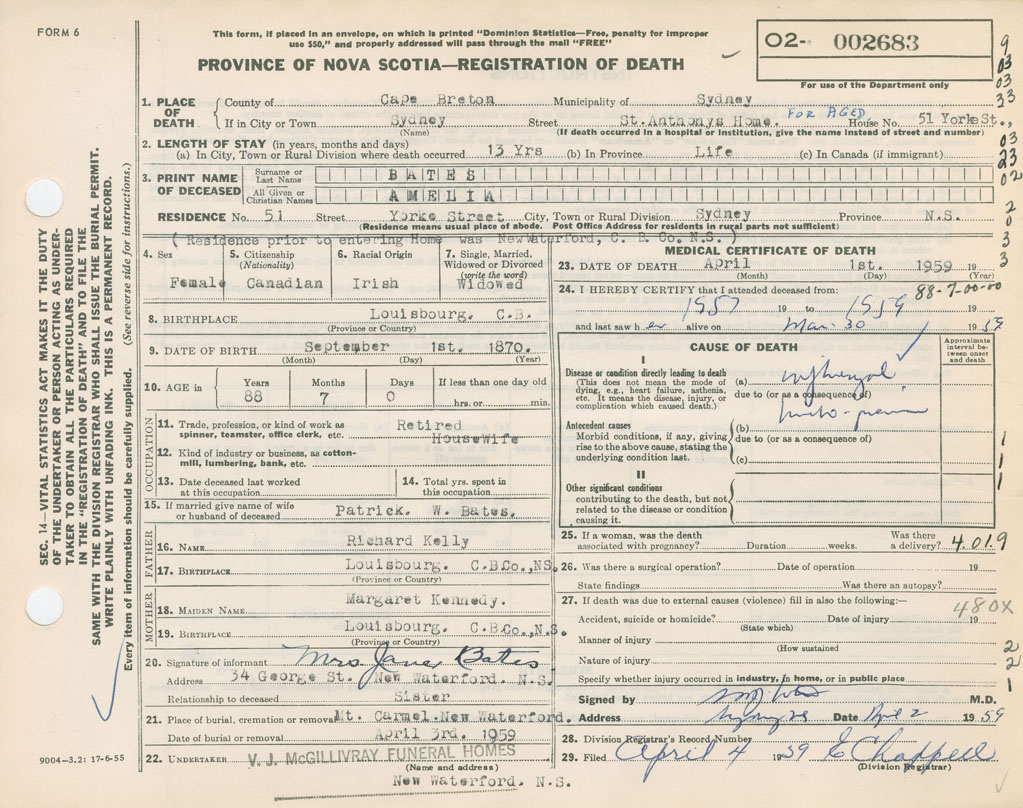 FORM 6
This form, if placed in an envelope, on which is printed "Dominion Statistics—Free, penalty for improper
use $50," and properly addressed will pass through the mail "FREE"
PROVINCE OF NOVA SCOTIA—REGISTRATION OF DEATH
O2- 002683
For use of the Department only
9
03
03
33
03
23
02
2
0
3
3
1. PLACE OF DEATH
County of Cape Breton Municipality of Sydney
If in City or Town Sydney Street St. Anthonys Home. FOR AGED House No. 51 Yorke St.,
(Name) (If death occurred in a hospital or institution, give the name instead of street and number)
2. LENGTH OF STAY (in years, months and days)
(a) In City, Town or Rural Division where death occurred 13 Yrs (b) In Province Life (c) In Canada (if immigrant)
3. PRINT NAME OF DECEASED
Surname or Last Name BATES
All Given or Christian Names AMELIA
RESIDENCE No. 51 Street Yorke Street City, Town or Rural Division Sydney Province N.S.
(Residence means usual place of abode. Post Office Address for residents in rural parts not sufficient)
( Residence prior to entering Home was NewWaterford, C. B. Co. N.S. )
4. Sex 5. Citizenship (Nationality) 6. Racial Origin 7. Single, Married, Widowed or Divorced (write the word)
Female Canadian Irish Widowed
8. BIRTHPLACE Louisbourg. C.B.
(Province or Country)
9. DATE OF BIRTH September 1st. 1870.
(Month) (Day) (Year)
10. AGE in Years Months Days If less than one day old
88 7 0 hrs. or min.
OCCUPATION
11. Trade, profession, or kind of work as spinner, teamster, office clerk, etc. Retired HouseWife
12. Kind of industry or business, as cotton-mill, lumbering, bank, etc.
13. Date deceased last worked at this occupation
14. Total yrs. spent in this occupation
15. If married give name of wife or husband of deceased Patrick. W. Bates.
FATHER
16. NAME Richard Kelly
17. BIRTHPLACE Louisbourg. C.B.Co.,NS.
(Province or Country)
MOTHER
18. MAIDEN NAME Margaret Kennedy.
19. BIRTHPLACE Louisbourg. C.B.Co.,N.S.
(Province or Country)
20. Signature of informant Mrs Jane Bates
Address 34 George St. New Waterford. N.S.
Relationship to deceased Sister
21. Place of burial, cremation or removal Mt. Carmel.New Waterford.
Date of burial or removal April 3rd. 1959
22. UNDERTAKER V. J. McGILLIVRAY FUNERAL HOMES
(Name and address)
New Waterford. N.S.
9004—3.2: 17-6-55
MEDICAL CERTIFICATE OF DEATH
23. DATE OF DEATH April 1st. 1959 19
(Month) (Day) (Year)
24. I HEREBY CERTIFY that I attended deceased from: 88-7-00-00
1957 19 to 1959 19
and last saw her alive on Mar. 30 19 59
CAUSE OF DEATH
Approximate interval between onset and death
I
Disease or condition directly leading to death
(This does not mean the mode of dying, e.g., heart failure, asthenia, etc. It means the disease, injury, or complication which caused death.)
(a)
due to (or as a consequence of)
Antecedent causes
Morbid conditions, if any, giving rise to the above cause, stating the underlying condition last.
(b)
due to (or as a consequence of)
(c)
1
1
1
II
Other significant conditions
contributing to the death, but not related to the disease or condition causing it.
25. If a woman, was the death associated with pregnancy? Duration weeks. Was there a delivery? 4.01.9
26. Was there a surgical operation? Date of operation 19
State findings Was there an autopsy?
27. If death was due to external causes (violence) fill in also the following:—
480X
Accident, suicide or homicide? Date of injury 19
(State which)
Manner of injury
(How sustained
2
Nature of injury
2
Specify whether injury occurred in industry, in home, or in public place
1
Signed by M.D.
Address Date Apl 2 19 59
28. Division Registrar's Record Number
29. Filed April 4 1959 E Chappell
(Division Registrar)
SEC. 14—VITAL STATISTICS ACT MAKES IT THE DUTY
OF THE UNDERTAKER OR PERSON ACTING AS UNDER-
TAKER TO OBTAIN ALL THE PARTICULARS REQUIRED
IN THE "REGISTRATION OF DEATH" AND TO FILE THE
SAME WITH THE DIVISION REGISTRAR WHO SHALL ISSUE THE BURIAL PERMIT.
WRITE PLAINLY WITH UNFADING INK. THIS IS A PERMANENT RECORD.
Every item of information should be carefully supplied. (See reverse side for instructions.)